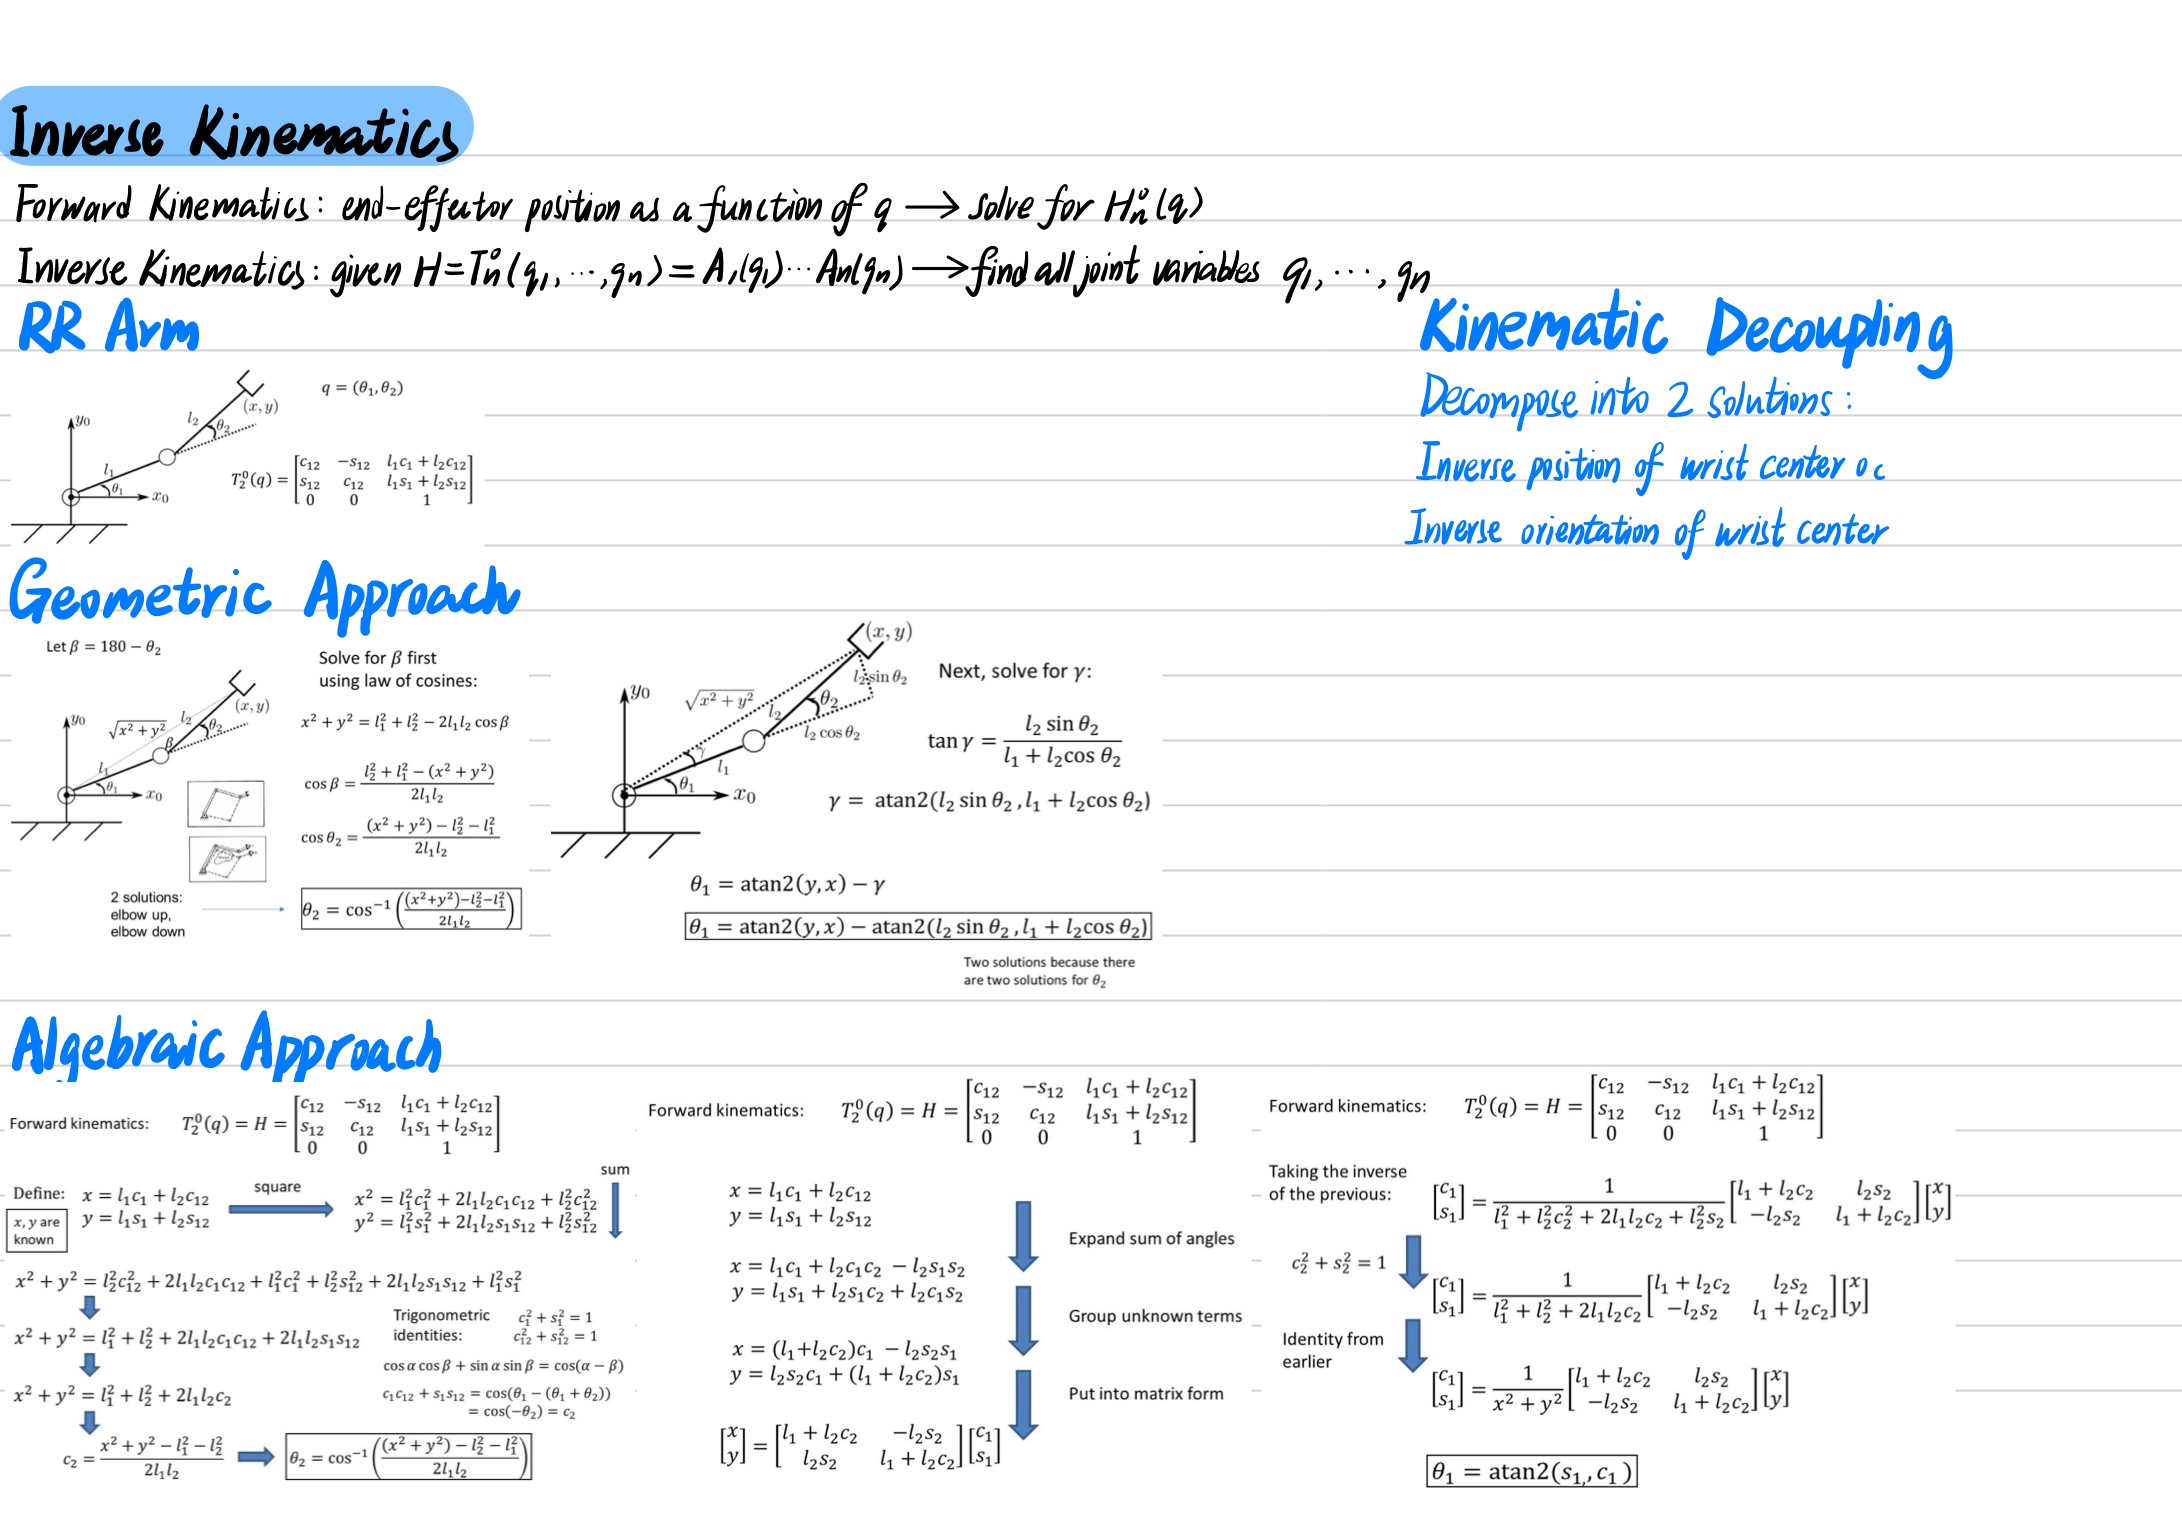 Inverse Kinematics
Forward Kinematics: end-effector position as a function of q → solve for H_n^0(q)
Inverse Kinematics: given H = T_n^0(q_1, ..., q_n) = A_1(q_1) ... A_n(q_n) → find all joint variables q_1, ..., q_n
RR Arm
q = (θ_1, θ_2)
y_0
l_1
θ_1
x_0
l_2
θ_2
(x, y)
T_2^0(q) = [c_12 −s_12 l_1c_1 + l_2c_12
s_12 c_12 l_1s_1 + l_2s_12
0 0 1]
Kinematic Decoupling
Decompose into 2 solutions:
Inverse position of wrist center o_c
Inverse orientation of wrist center
Geometric Approach
Let β = 180 − θ_2
y_0
√(x² + y²)
l_2
θ_2
(x, y)
β
l_1
θ_1
x_0
2 solutions:
elbow up,
elbow down
Solve for β first
using law of cosines:
x² + y² = l_1² + l_2² − 2l_1l_2 cos β
cos β = (l_2² + l_1² − (x² + y²)) / (2l_1l_2)
cos θ_2 = ((x² + y²) − l_2² − l_1²) / (2l_1l_2)
θ_2 = cos⁻¹(((x²+y²)−l_2²−l_1²) / (2l_1l_2))
y_0
√(x² + y²)
(x, y)
l_2 sin θ_2
θ_2
l_2
l_2 cos θ_2
γ
l_1
θ_1
x_0
Next, solve for γ:
tan γ = (l_2 sin θ_2) / (l_1 + l_2cos θ_2)
γ = atan2(l_2 sin θ_2 , l_1 + l_2cos θ_2)
θ_1 = atan2(y, x) − γ
θ_1 = atan2(y, x) − atan2(l_2 sin θ_2 , l_1 + l_2cos θ_2)
Two solutions because there
are two solutions for θ_2
Algebraic Approach
Forward kinematics: T_2^0(q) = H = [c_12 −s_12 l_1c_1 + l_2c_12
s_12 c_12 l_1s_1 + l_2s_12
0 0 1]
Define: x = l_1c_1 + l_2c_12
y = l_1s_1 + l_2s_12
x, y are
known
square
x² = l_1²c_1² + 2l_1l_2c_1c_12 + l_2²c_12²
y² = l_1²s_1² + 2l_1l_2s_1s_12 + l_2²s_12²
sum
x² + y² = l_2²c_12² + 2l_1l_2c_1c_12 + l_1²c_1² + l_2²s_12² + 2l_1l_2s_1s_12 + l_1²s_1²
x² + y² = l_1² + l_2² + 2l_1l_2c_1c_12 + 2l_1l_2s_1s_12
x² + y² = l_1² + l_2² + 2l_1l_2c_2
Trigonometric
identities:
c_1² + s_1² = 1
c_12² + s_12² = 1
cos α cos β + sin α sin β = cos(α − β)
c_1c_12 + s_1s_12 = cos(θ_1 − (θ_1 + θ_2))
= cos(−θ_2) = c_2
c_2 = (x² + y² − l_1² − l_2²) / (2l_1l_2)
θ_2 = cos⁻¹(((x² + y²) − l_2² − l_1²) / (2l_1l_2))
Forward kinematics: T_2^0(q) = H = [c_12 −s_12 l_1c_1 + l_2c_12
s_12 c_12 l_1s_1 + l_2s_12
0 0 1]
x = l_1c_1 + l_2c_12
y = l_1s_1 + l_2s_12
Expand sum of angles
x = l_1c_1 + l_2c_1c_2 − l_2s_1s_2
y = l_1s_1 + l_2s_1c_2 + l_2c_1s_2
Group unknown terms
x = (l_1+l_2c_2)c_1 − l_2s_2s_1
y = l_2s_2c_1 + (l_1 + l_2c_2)s_1
Put into matrix form
[x y] = [l_1 + l_2c_2 −l_2s_2
l_2s_2 l_1 + l_2c_2] [c_1 s_1]
Forward kinematics: T_2^0(q) = H = [c_12 −s_12 l_1c_1 + l_2c_12
s_12 c_12 l_1s_1 + l_2s_12
0 0 1]
Taking the inverse
of the previous:
[c_1 s_1] = 1 / (l_1² + l_2²c_2² + 2l_1l_2c_2 + l_2²s_2) [l_1 + l_2c_2 l_2s_2
−l_2s_2 l_1 + l_2c_2] [x y]
c_2² + s_2² = 1
[c_1 s_1] = 1 / (l_1² + l_2² + 2l_1l_2c_2) [l_1 + l_2c_2 l_2s_2
−l_2s_2 l_1 + l_2c_2] [x y]
Identity from
earlier
[c_1 s_1] = 1 / (x² + y²) [l_1 + l_2c_2 l_2s_2
−l_2s_2 l_1 + l_2c_2] [x y]
θ_1 = atan2(s_1, , c_1 )